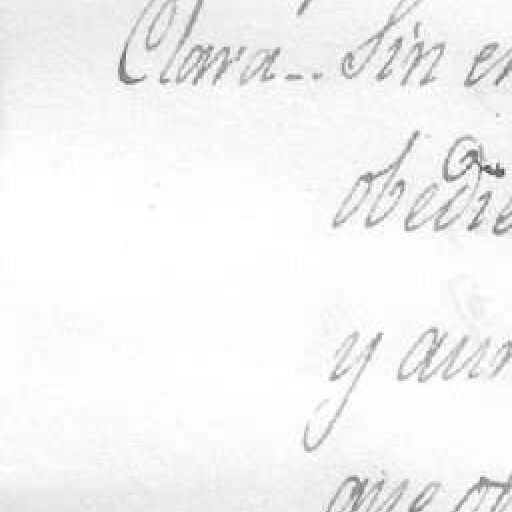 Clara.. Sin en
obedie
y aun
que ob